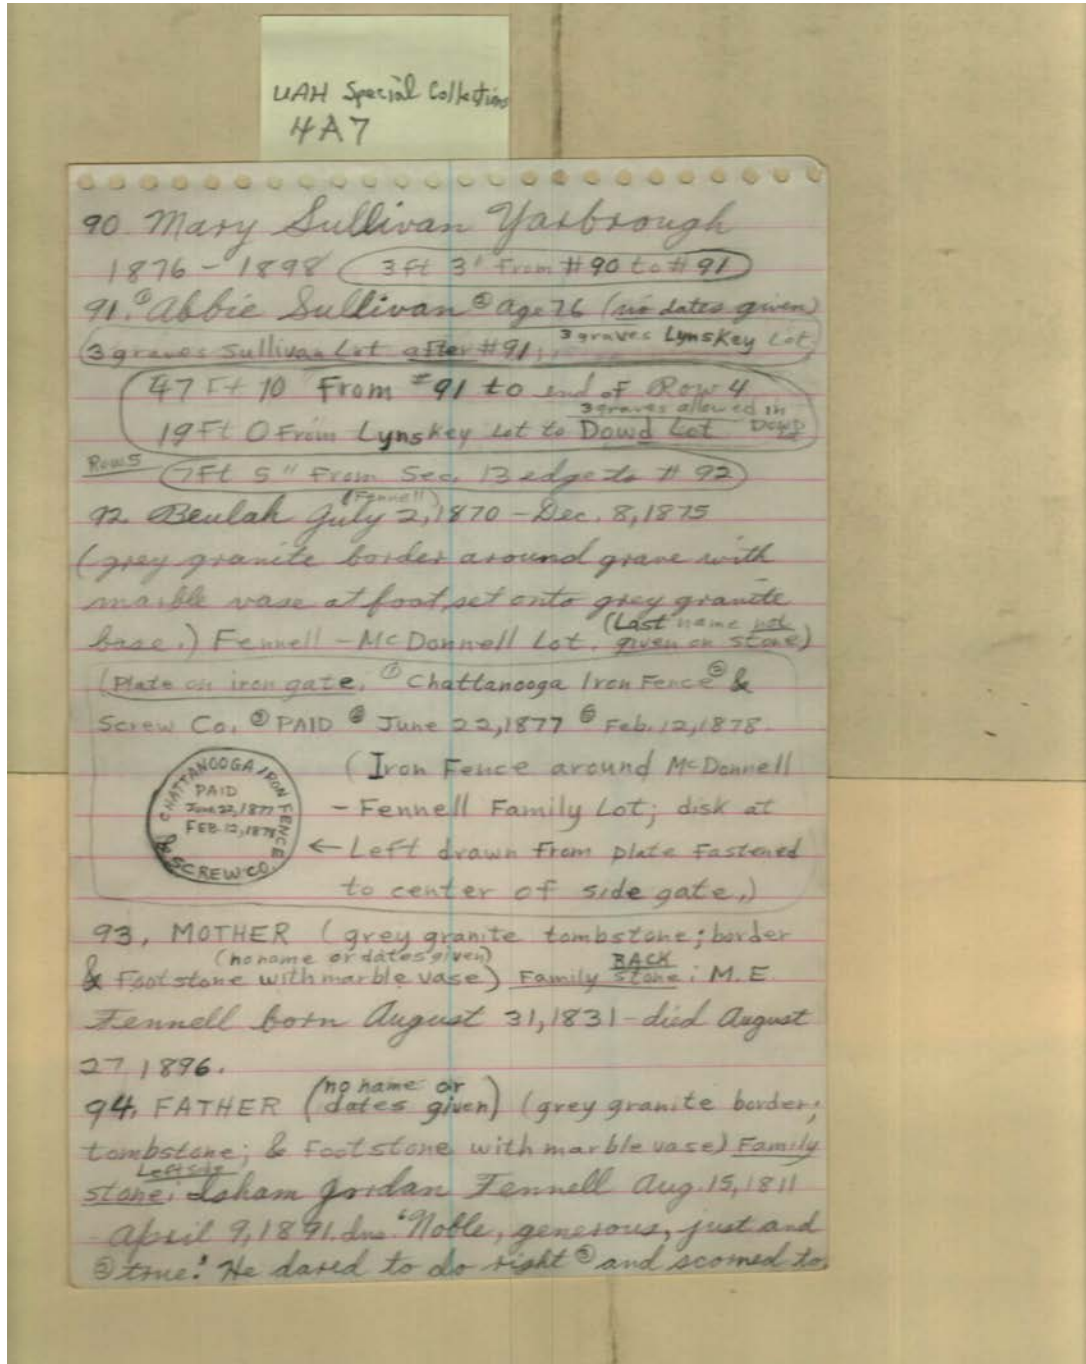 UAH Special Collections
4A7
90. Mary Sullivan Yarbrough
1876 - 1898 (3 ft 3" From #90 to #91)
91. ① Abbie Sullivan ② age 76 (no dates given)
(3 graves Sullivan Lot after #91, 3 graves Lynskey Lot,
47 Ft 10 From #91 to end of Row 4
3 graves allowed in
19 Ft 0 From Lynskey Lot to Dowd Lot Dowd
Row 5 (7Ft 5" From Sec. 13 edge to #92)
(Fennell)
92. Beulah July 2, 1870 - Dec. 8, 1875
(grey granite border around grave with
marble vase at foot, set onto grey granite
base.) Fennell - McDonnell Lot. (Last name not
given on stone)
(Plate on iron gate, ① Chattanooga Iron Fence ② &
Screw Co. ③ PAID ④ June 22, 1877 ⑤ Feb. 12, 1878.
CHATTANOOGA IRON FENCE
& SCREW CO.
PAID
June 22, 1877
FEB. 12, 1878
(Iron Fence around McDonnell
- Fennell Family Lot; disk at
← Left drawn from plate fastened
to center of side gate.)
93. MOTHER (grey granite tombstone; border
(no name or dates given) BACK
& Footstone with marble vase) Family stone: M.E.
Fennell born August 31, 1831 - died August
27 1896.
94. FATHER (no name or
dates given) (grey granite border;
tombstone; & Footstone with marble vase) Family
Left side
stone: Isham Jordan Fennell Aug. 15, 1811
- April 9, 1891. "Noble, generous, just and
③ true." He dared to do right ③ and scorned to